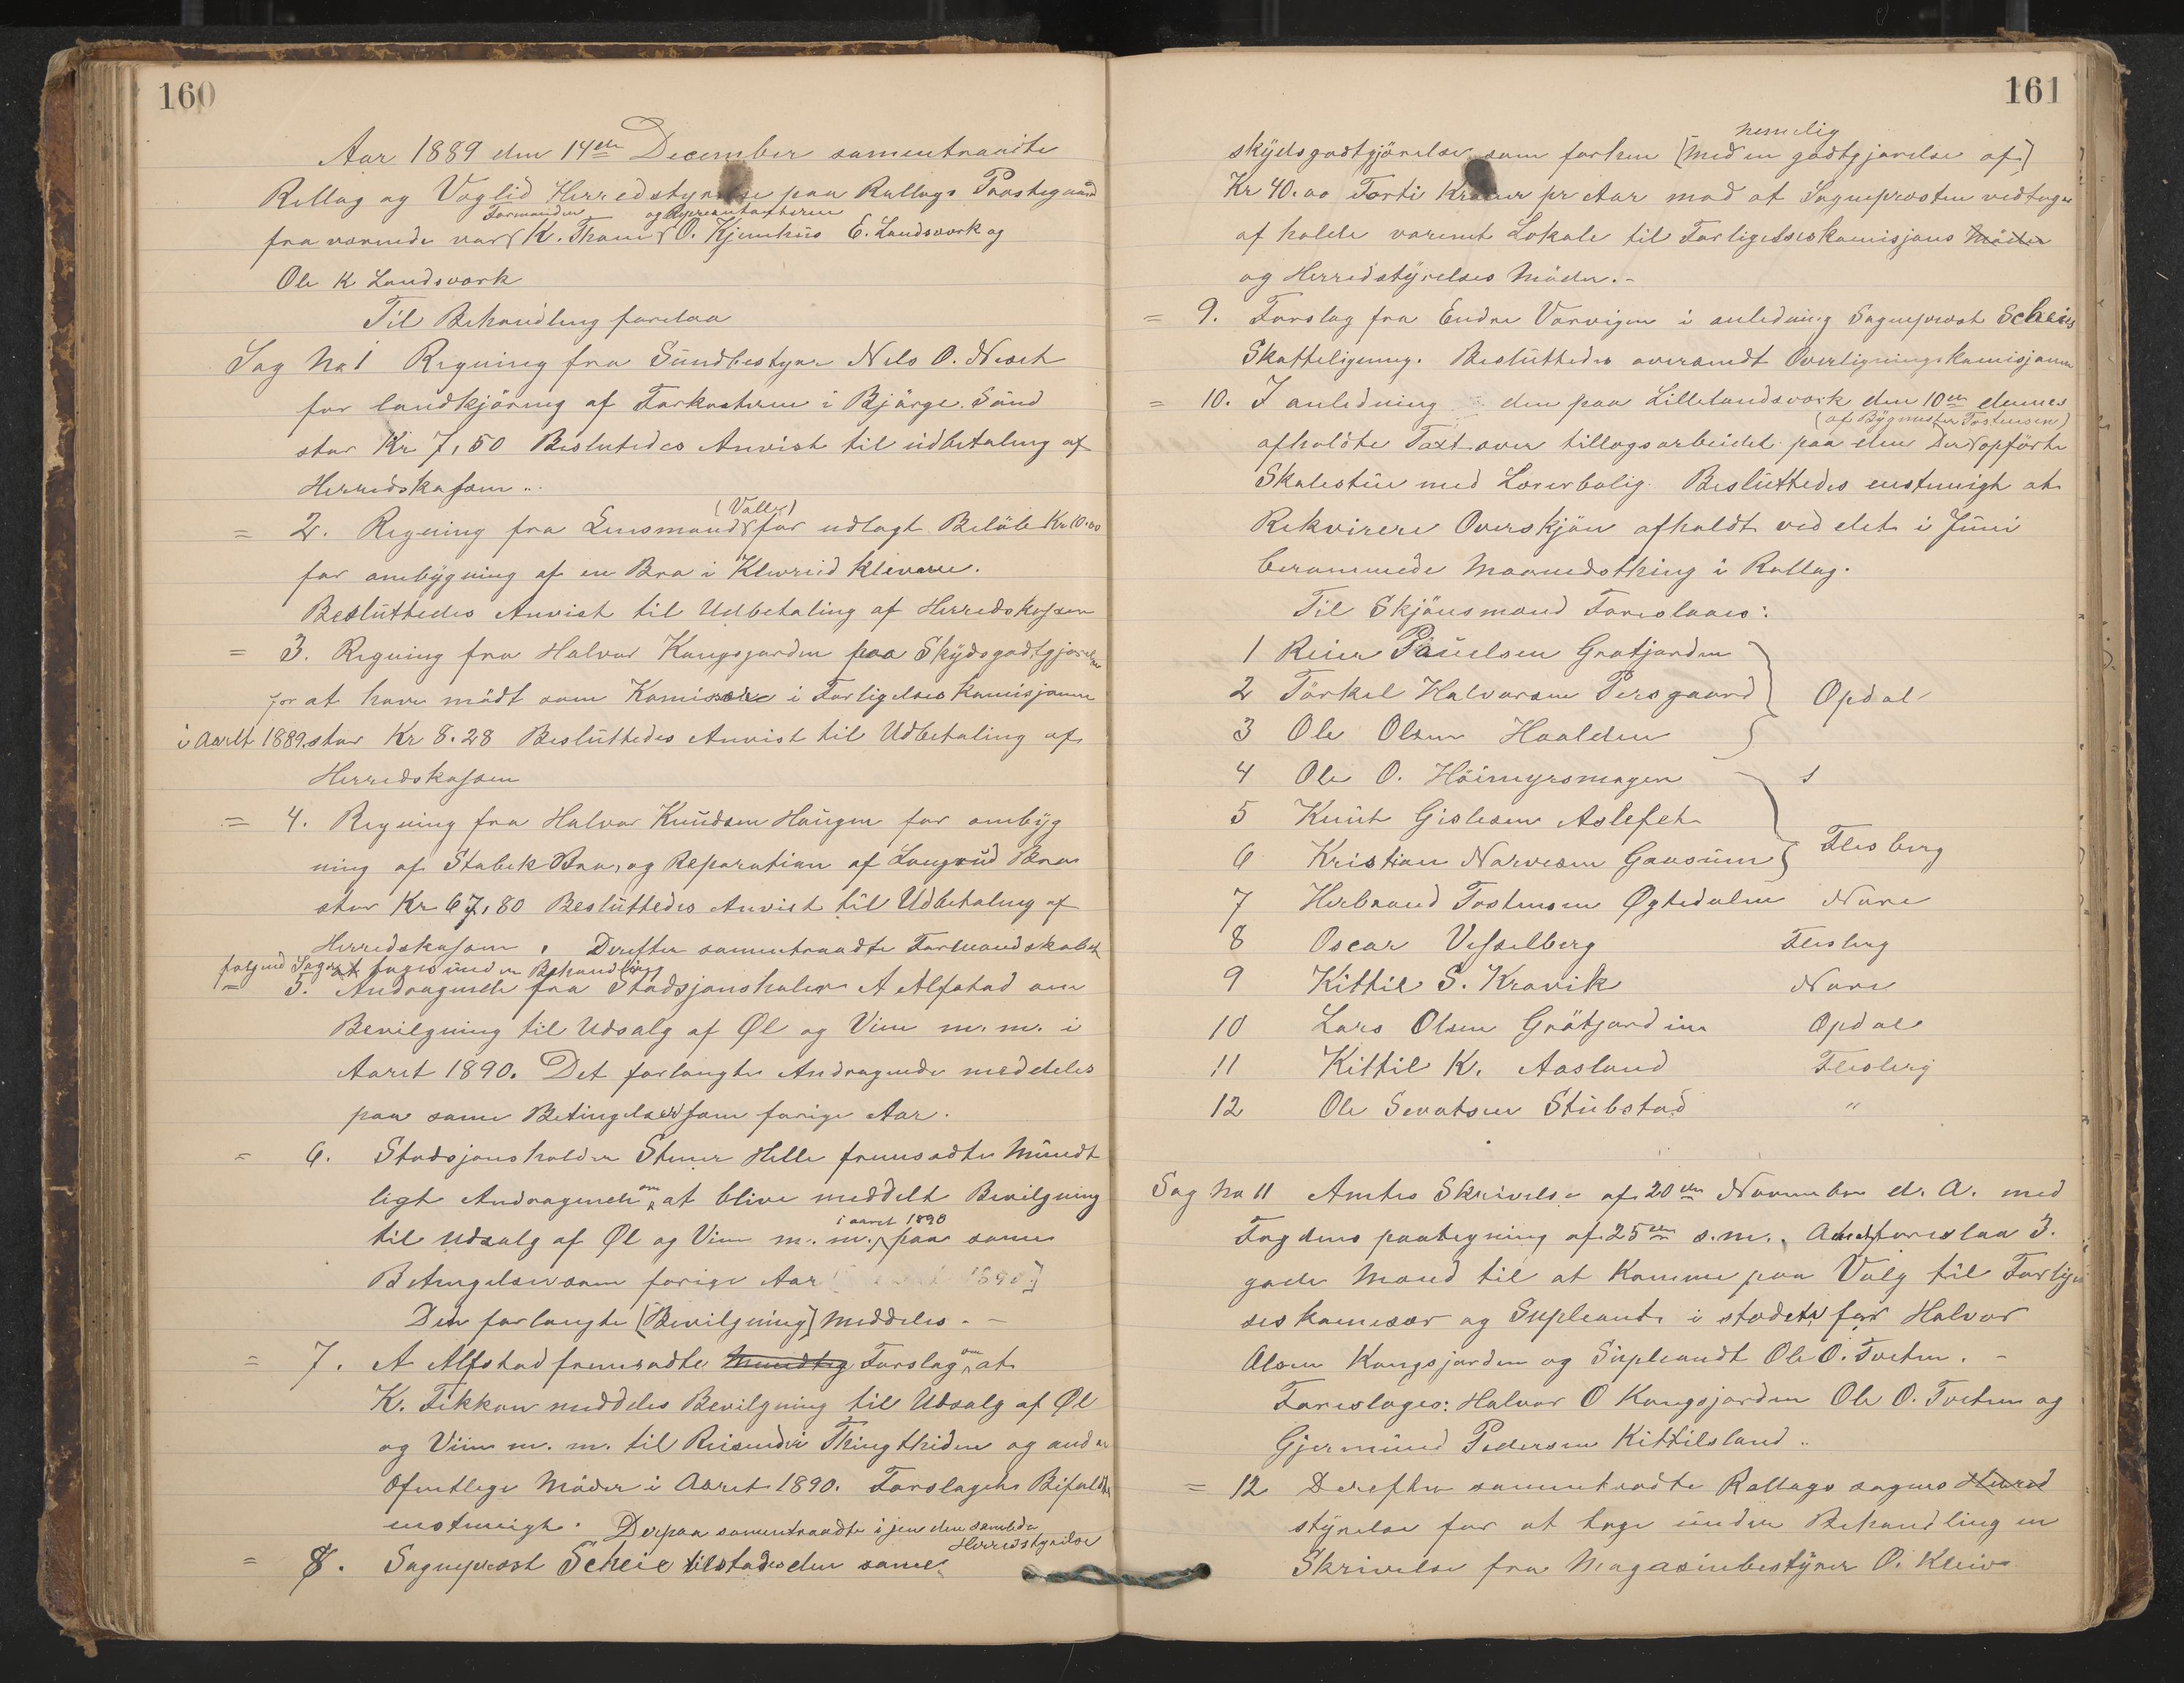 160
Aar 1889 den 14de December samentraadte
Rollag og Væglid Herredstyrelse paa Rollags Præstegaard
Formanden og Repræsentanterne
fra værende var K. Traaen O. Kjemhus E. Landsværk og
Ole K Landsværk
Til Behandling forelaa
Sag No 1 Regning fra Sundbestyrer Nels O. Næset
for landkjøring af Forkasterne i Bjørge. Sund
stor Kr 7,50 Beslutedes Anvist til udbetaling af
Herredskassen..
(Valle)
= 2. Regning fra Lensmand for udlagt Beløb Kr 10.00
for ombygning af en Bro i Klevreid klevene.
Besluttedes Anvist til Udbetaling af Herredskassen
= 3. Regning fra Halvor Kongsgarden paa Skydsgodtgjørelse
for at have mødt som Komisær i Forligelses Komisjonen
i Aaret 1889. stor Kr 8.28 Besluttedes Anvist til Udbetaling af
Herredskassen
= 4. Regning fra Halvor Knudsen Haugen for ombyg
ning af Stabek Bro, og Reparation af Langrud Bro
stor Kr 67,80 Besluttedes Anvist til Udbetaling af
Herredskassen. Derefter samentraadte Formandskabet
følgend Sager at tages under Behandling
= 5. Andragende fra Stadsjonsholder A Alfstad om
Bevilgning til Udsalg af Øl og Vin m. m. i
Aaret 1890. Det forlangte Andragende meddeles
paa same Betingelser som forige Aar.
= 6. Stadsjonsholder Stener Helle fremsadte Mundt
ligt Andragende om at blive meddelt Bevilgning
i aaret 1890
til Udsalg af Øl og Vin m. m. paa same
Betingelser som forige Aar 1890]
Den forlangte [Bevilgning] Meddeles. –
= 7. A Alfstad fremsadte Mundtlig Forslag om at
K. Fekkan meddeles Bevilgning til Udsalg af Øl
og Viin m. m. til Reisende i Thingthiden og andre
Ofentlege Møder i Aaret 1890. Forslaget Bifaldtes
enstemigt. Derpaa samentraadte i jen den samlede
Herredstyrelse
= 8. Sogneprost Scheie tilstades den same
161
nemelig
skydsgodtgjørelse som forhen [Med en godtgjørelse af]
Kr 40.00 Forti Kroner pr Aar mod at Sogneprosten vedtager
at holde varemt Lokale til Forligelseskomisjons Møder
og Herredstyrelses Møder.-
= 9. Forslag fra Endre Varvigen i anledning Sogneprost Scheies
Skatteligning. Besluttedes oversendt Overligningskomisjonen
= 10. I anledning den paa Lillelandsværk den 10de dennes
(af Bygmester Tostensen)
afholdte Taxt over tillagsarbeidet paa den Der opførte
Skolestue med Lærerbolig. Besluttedes enstemigt at
Rekvirere Overskjøn afholdt ved det i Juni
berammede Maanedsthing i Rollag.
Til Skjønsmænd Foreslaaes:
1 Reier Paulsen Grøtjorden
2 Torkel Halvorsen Persgaard Opdal
3 Ole Olsen Haalden
4 Ole O. Høimyrsmogen
5 Knut Gislesen Aslefet
6 Kristian Narvesen Gaasum Flesberg
7 Herbrand Tostensen Øgtedalen Nore
8 Oscar Vesselberg Flesberg
9 Kittil S. Kravik Nore
10 Lars Olsen Grøtjordine Opdal
11 Kittil K. Aasland Flesberg
12 Ole Sevatsen Stubstad "
Sag No 11 Amtes Skrivelse af 20de November d. A. med
Fogdens paategning af 25de s.m., At foreslaa 3.
gode Mænd til at Komme paa Valg til Forligel
ses komesær og Supleant i stedet for Halvor
Olsen Kongsjorden og Supleandt Ole O. Tveten. –
Foreslages: Halvor O Kongsjorden Ole O. Tveten og
Gjermund Pedersen Kittilsland..
= 12 Derefter samentraadte Rollags sogns Herred
styrelse for at tage under Behandling en
Skrivelse fra Magasinbestyrer O. Kleiv